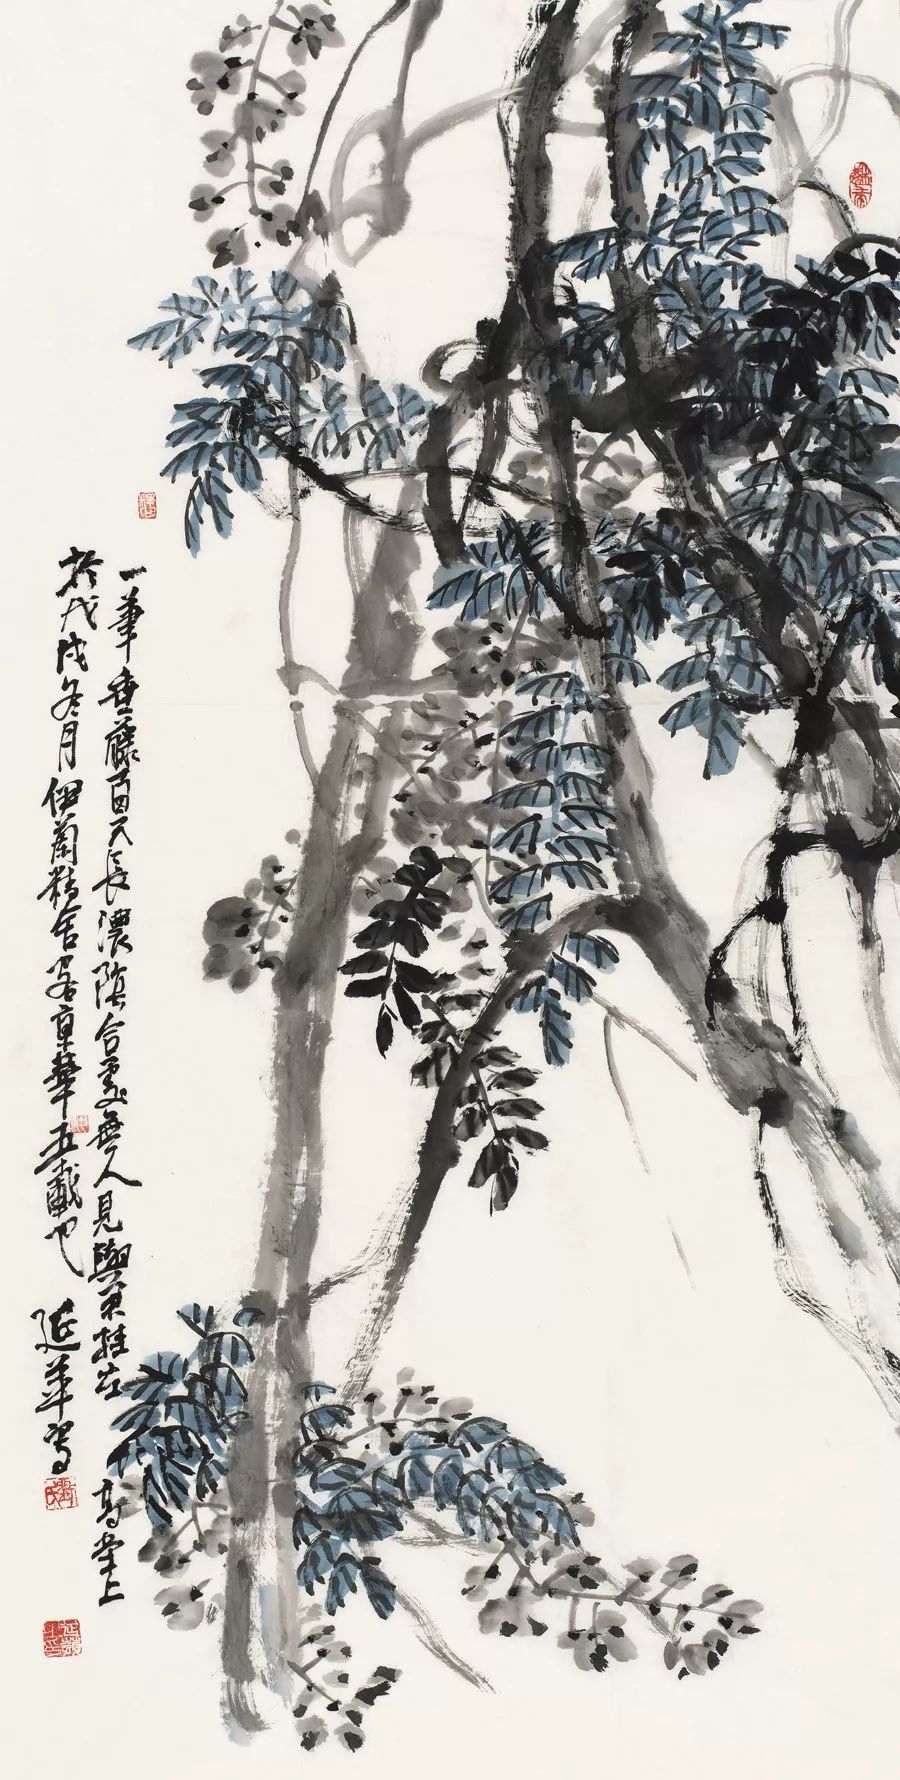 一筆垂藤百尺長濃陰合處無人見與君挂在高堂上
於戊戌冬月伊蘭精舍客京華五載也延華寫